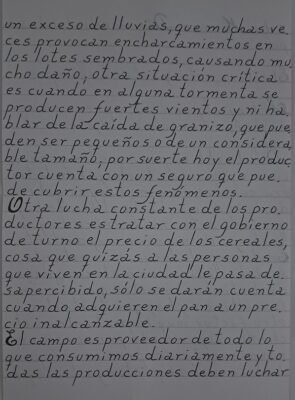 un exceso de lluvias, que muchas ve_
ces provocan encharcamientos en
los lotes sembrados, causando mu_
cho daño, otra situación crítica
es cuando en alguna tormenta se
producen fuertes vientos y ni ha_
blar de la caída de granizo, que pue_
den ser pequeños o de un considera_
ble tamaño, por suerte hoy el produc_
tor cuenta con un seguro que pue_
de cubrir estos fenómenos.
Otra lucha constante de los pro_
ductores es tratar con el gobierno
de turno el precio de los cereales,
cosa que quizás a las personas
que viven en la ciudad le pasa de_
sapercibido, sólo se darán cuenta
cuando adquieren el pan a un pre_
cio inalcanzable.
El campo es proveedor de todo lo
que consumimos diariamente y to_
das las producciones deben luchar